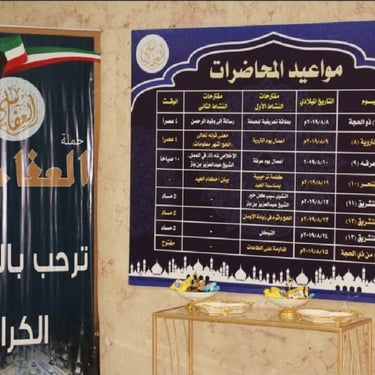 حملة
العفا
ترحب بال
الكرا
مواعيد المحاضرات
يوم التاريخ الميلادي مقترحات النشاط الأول مقترحات النشاط الثاني الوقت
ذو الحجة ٢٠١٩/٨/٨ بطاقة تعريفية للحملة رسالة إلى وفود الرحمن ٤ عصرا
التروية (٨) ٢٠١٩/٨/٩ أعمال يوم التروية معنى قوله تعالى الحج أشهر معلومات ٤ عصرا
عرفة (٩) ٢٠١٩/٨/١٠ أعمال يوم عرفة الإخلاص لله في العمل الشيخ عبدالعزيز بن باز ١٠ صباحا
النحر (١٠) ٢٠١٩/٨/١١ كلمة ترحيبية بمناسبة العيد بيان أحكام العيد -
التشريق (١١) ٢٠١٩/٨/١٢ الشيخ عبدالعزيز بن باز - ٥ مساء
التشريق (١٢) ٢٠١٩/٨/١٣ الحج وأثره في زيادة الإيمان - ٥ مساء
التشريق (١٣) ٢٠١٩/٨/١٤ - ٥ مساء
من ذي الحجة ٢٠١٩/٨/١٥ المداومة على الطاعات - مفتوح